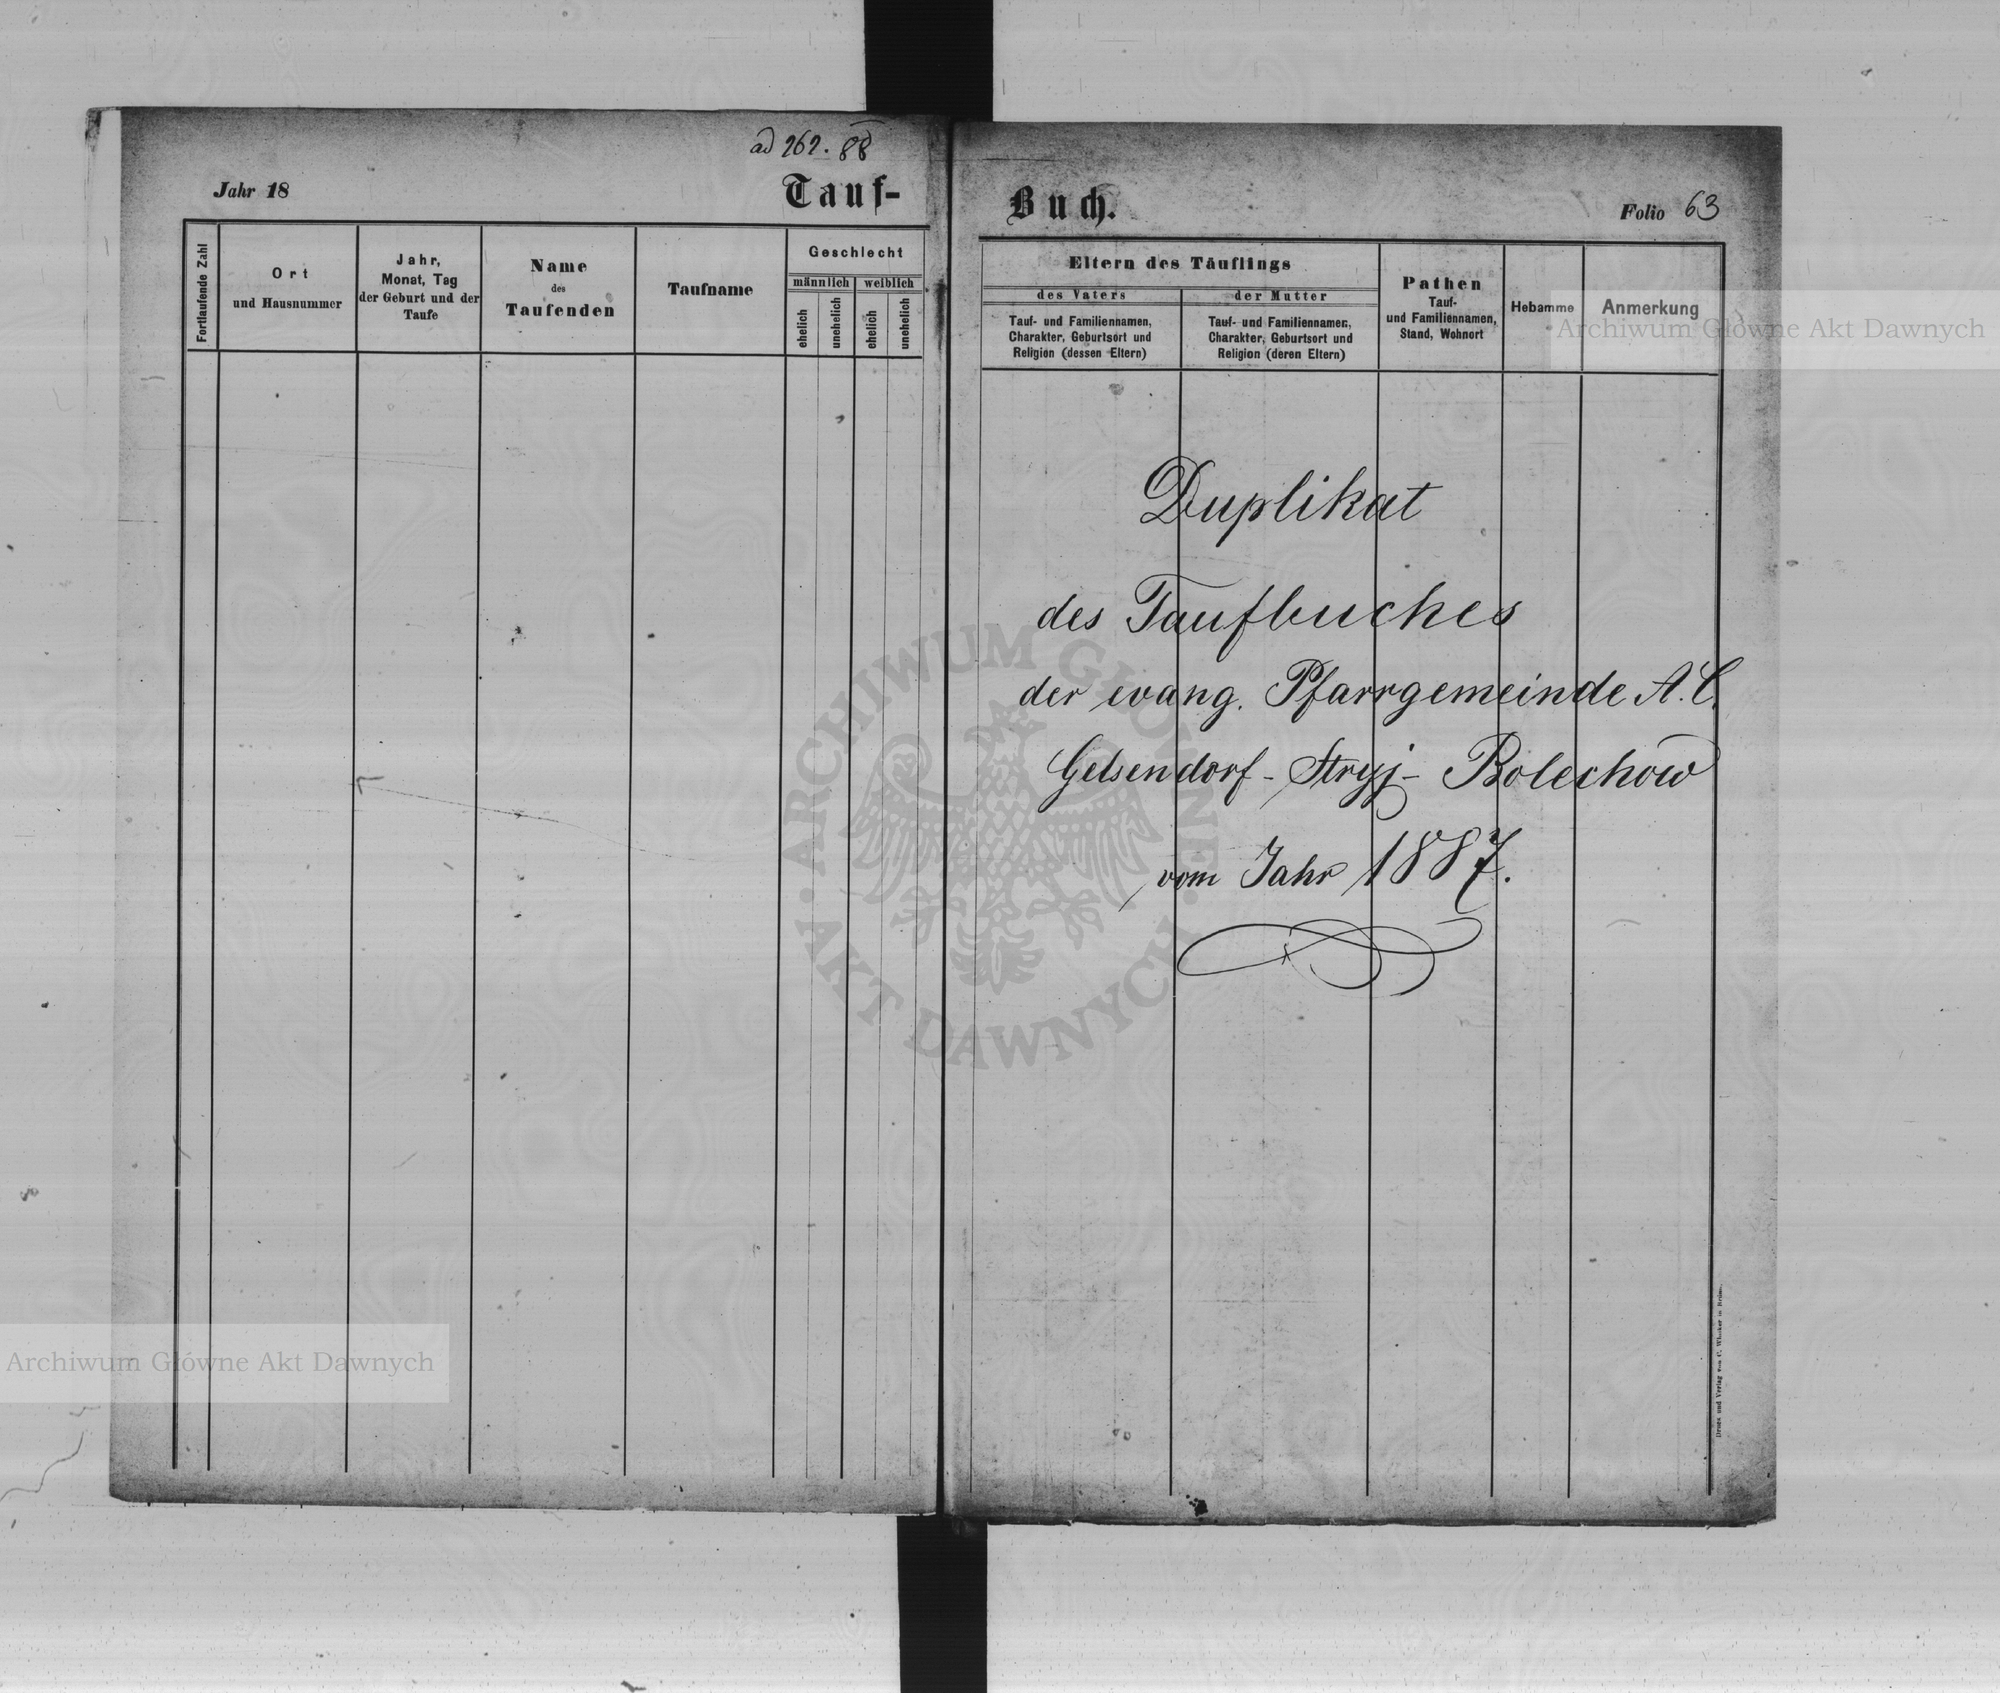 ad 262. 88
Jahr 18
Tauf-
Fortlaufende Zahl
Ort
und Hausnummer
Jahr,
Monat, Tag
der Geburt und der
Taufe
Name
des
Taufenden
Taufname
Geschlecht
männlich
weiblich
ehelich
unehelich
ehelich
unehelich
Buch.
Folio 63
Eltern des Täuflings
des Vaters
Tauf- und Familiennamen,
Charakter, Geburtsort und
Religion (dessen Eltern)
der Mutter
Tauf- und Familiennamen,
Charakter, Geburtsort und
Religion (deren Eltern)
Pathen
Tauf-
und Familiennamen,
Stand, Wohnort
Hebamme
Anmerkung
Archiwum Główne Akt Dawnych
Duplikat
des Taufbuches
der evang. Pfarrgemeinde A. C.
Gelsendorf - Stryj - Bolechów
vom Jahr 1887.
ARCHIWUM GŁÓWNE · AKT DAWNYCH ·
Archiwum Główne Akt Dawnych
Druck und Verlag von in Brünn.